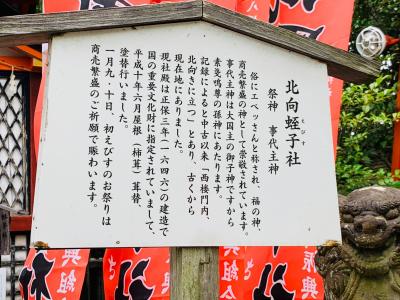 北向蛭子社
えびす
祭神　事代主神
俗にエベッさんと称され、福の神、
商売繁盛の神として崇敬されています。
事代主神は大国主の御子神ですから
素戔嗚尊の孫神にあたります。
記録によると中古以来「西楼門内、
北向きに立つ」とあり、古くから
現在地にありました。
現社殿は正保三年（一六四六）の建造で
国の重要文化財に指定されていまして、
平成十年六月屋根（柿葺）葺替、
塗替行いました。
一月九・十日、初えびすのお祭りは
商売繁盛のご祈願で賑わいます。
興組合